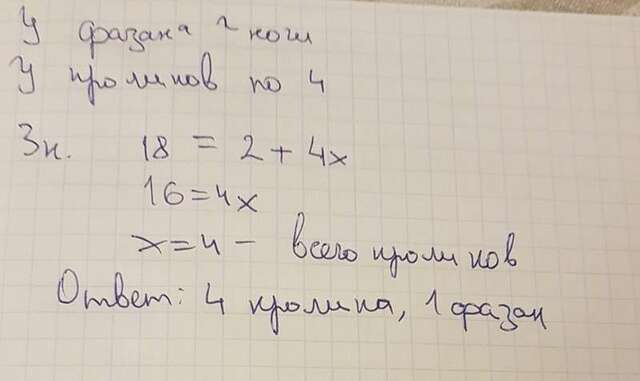 У фазана 2 ноги
У кроликов по 4
Зн. 18 = 2 + 4x
16 = 4x
x = 4 - всего кроликов
Ответ: 4 кролика, 1 фазан